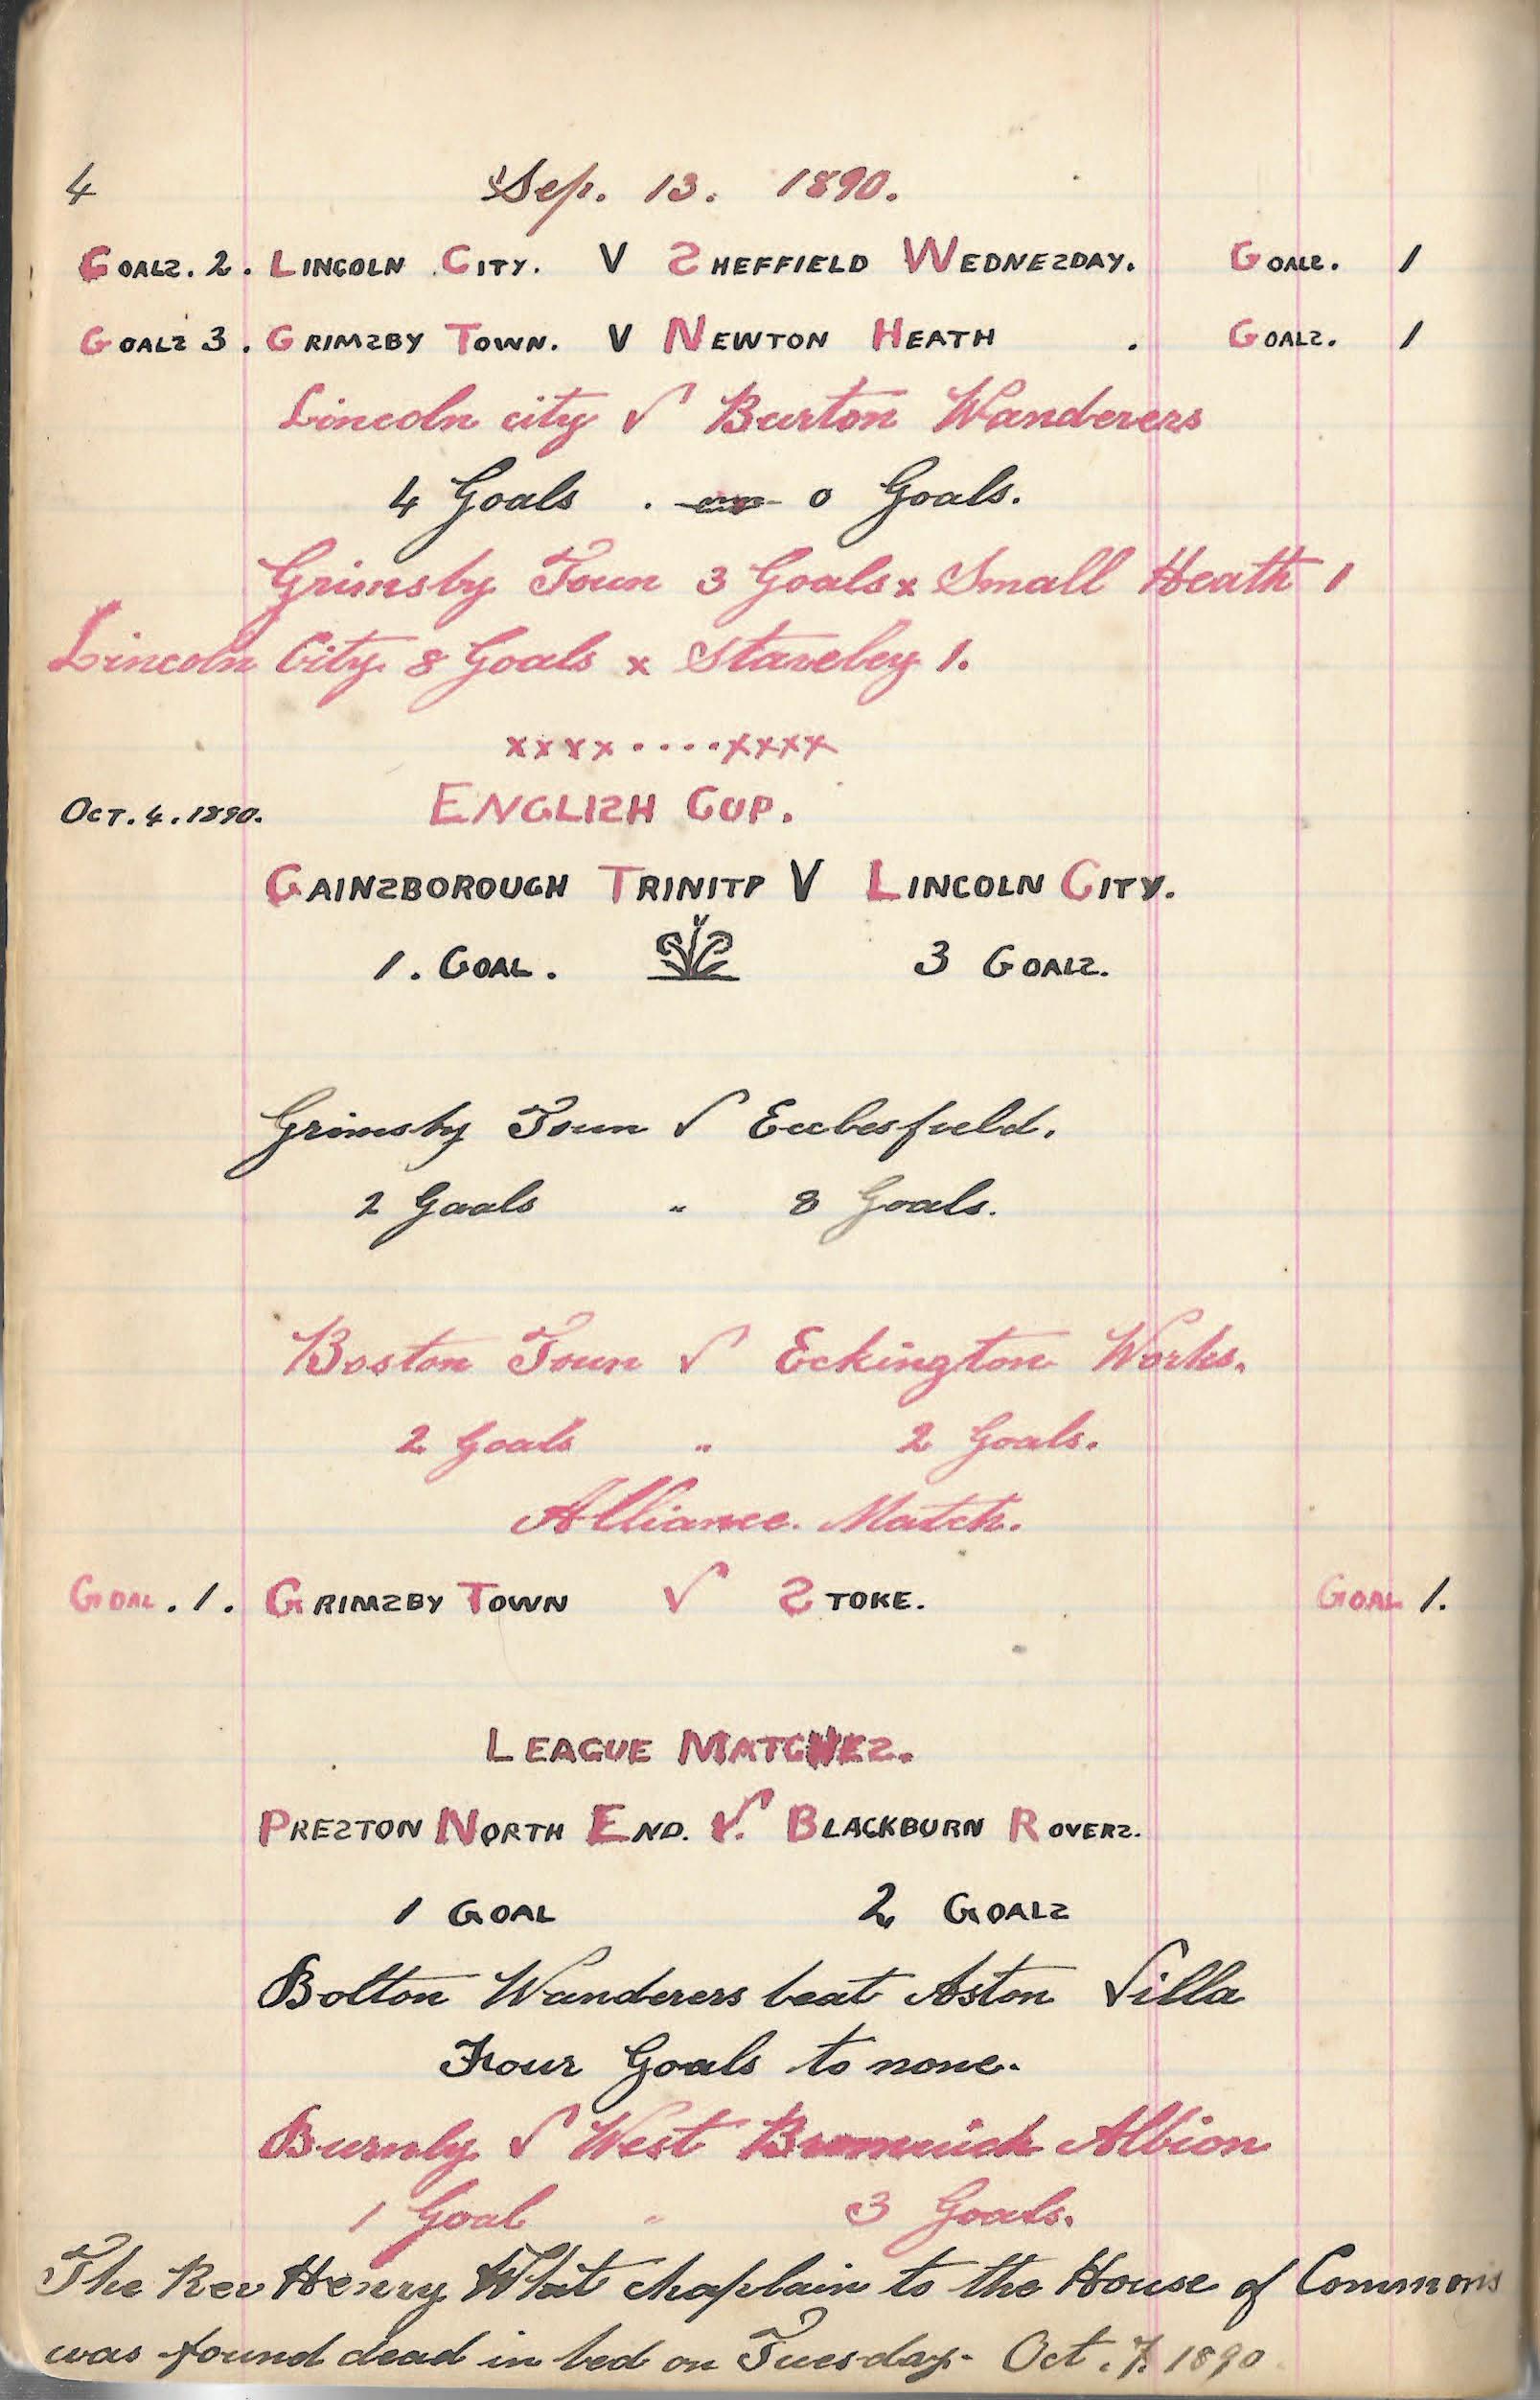 4 Sep. 13. 1890.
GOALS. 2. LINCOLN CITY. V SHEFFIELD WEDNESDAY. GOALS. 1
GOALS 3. GRIMSBY TOWN. V NEWTON HEATH . GOALS. 1
Lincoln city V Burton Wanderers
4 Goals . 0 Goals.
Grimsby Town 3 Goals x Small Heath 1
Lincoln City 8 Goals x Staveley 1.
xxxx....xxxx
OCT. 4. 1890. ENGLISH CUP.
GAINSBOROUGH TRINITY V LINCOLN CITY.
1. GOAL. 3 GOALS.
Grimsby Town V Ecclesfield.
2 Goals " 8 Goals.
Boston Town V Eckington Works.
2 Goals " 2 Goals.
Alliance. Match.
GOAL. 1. GRIMSBY TOWN V STOKE. GOAL 1.
LEAGUE MATCHES.
PRESTON NORTH END. V. BLACKBURN ROVERS.
1 GOAL 2 GOALS
Bolton Wanderers beat Aston Villa
Four Goals to none.
Burnly V West Bromwich Albion
1 Goal " 3 Goals.
The Rev Henry Whit chaplain to the House of Commons
was found dead in bed on Tuesday. Oct. 7. 1890